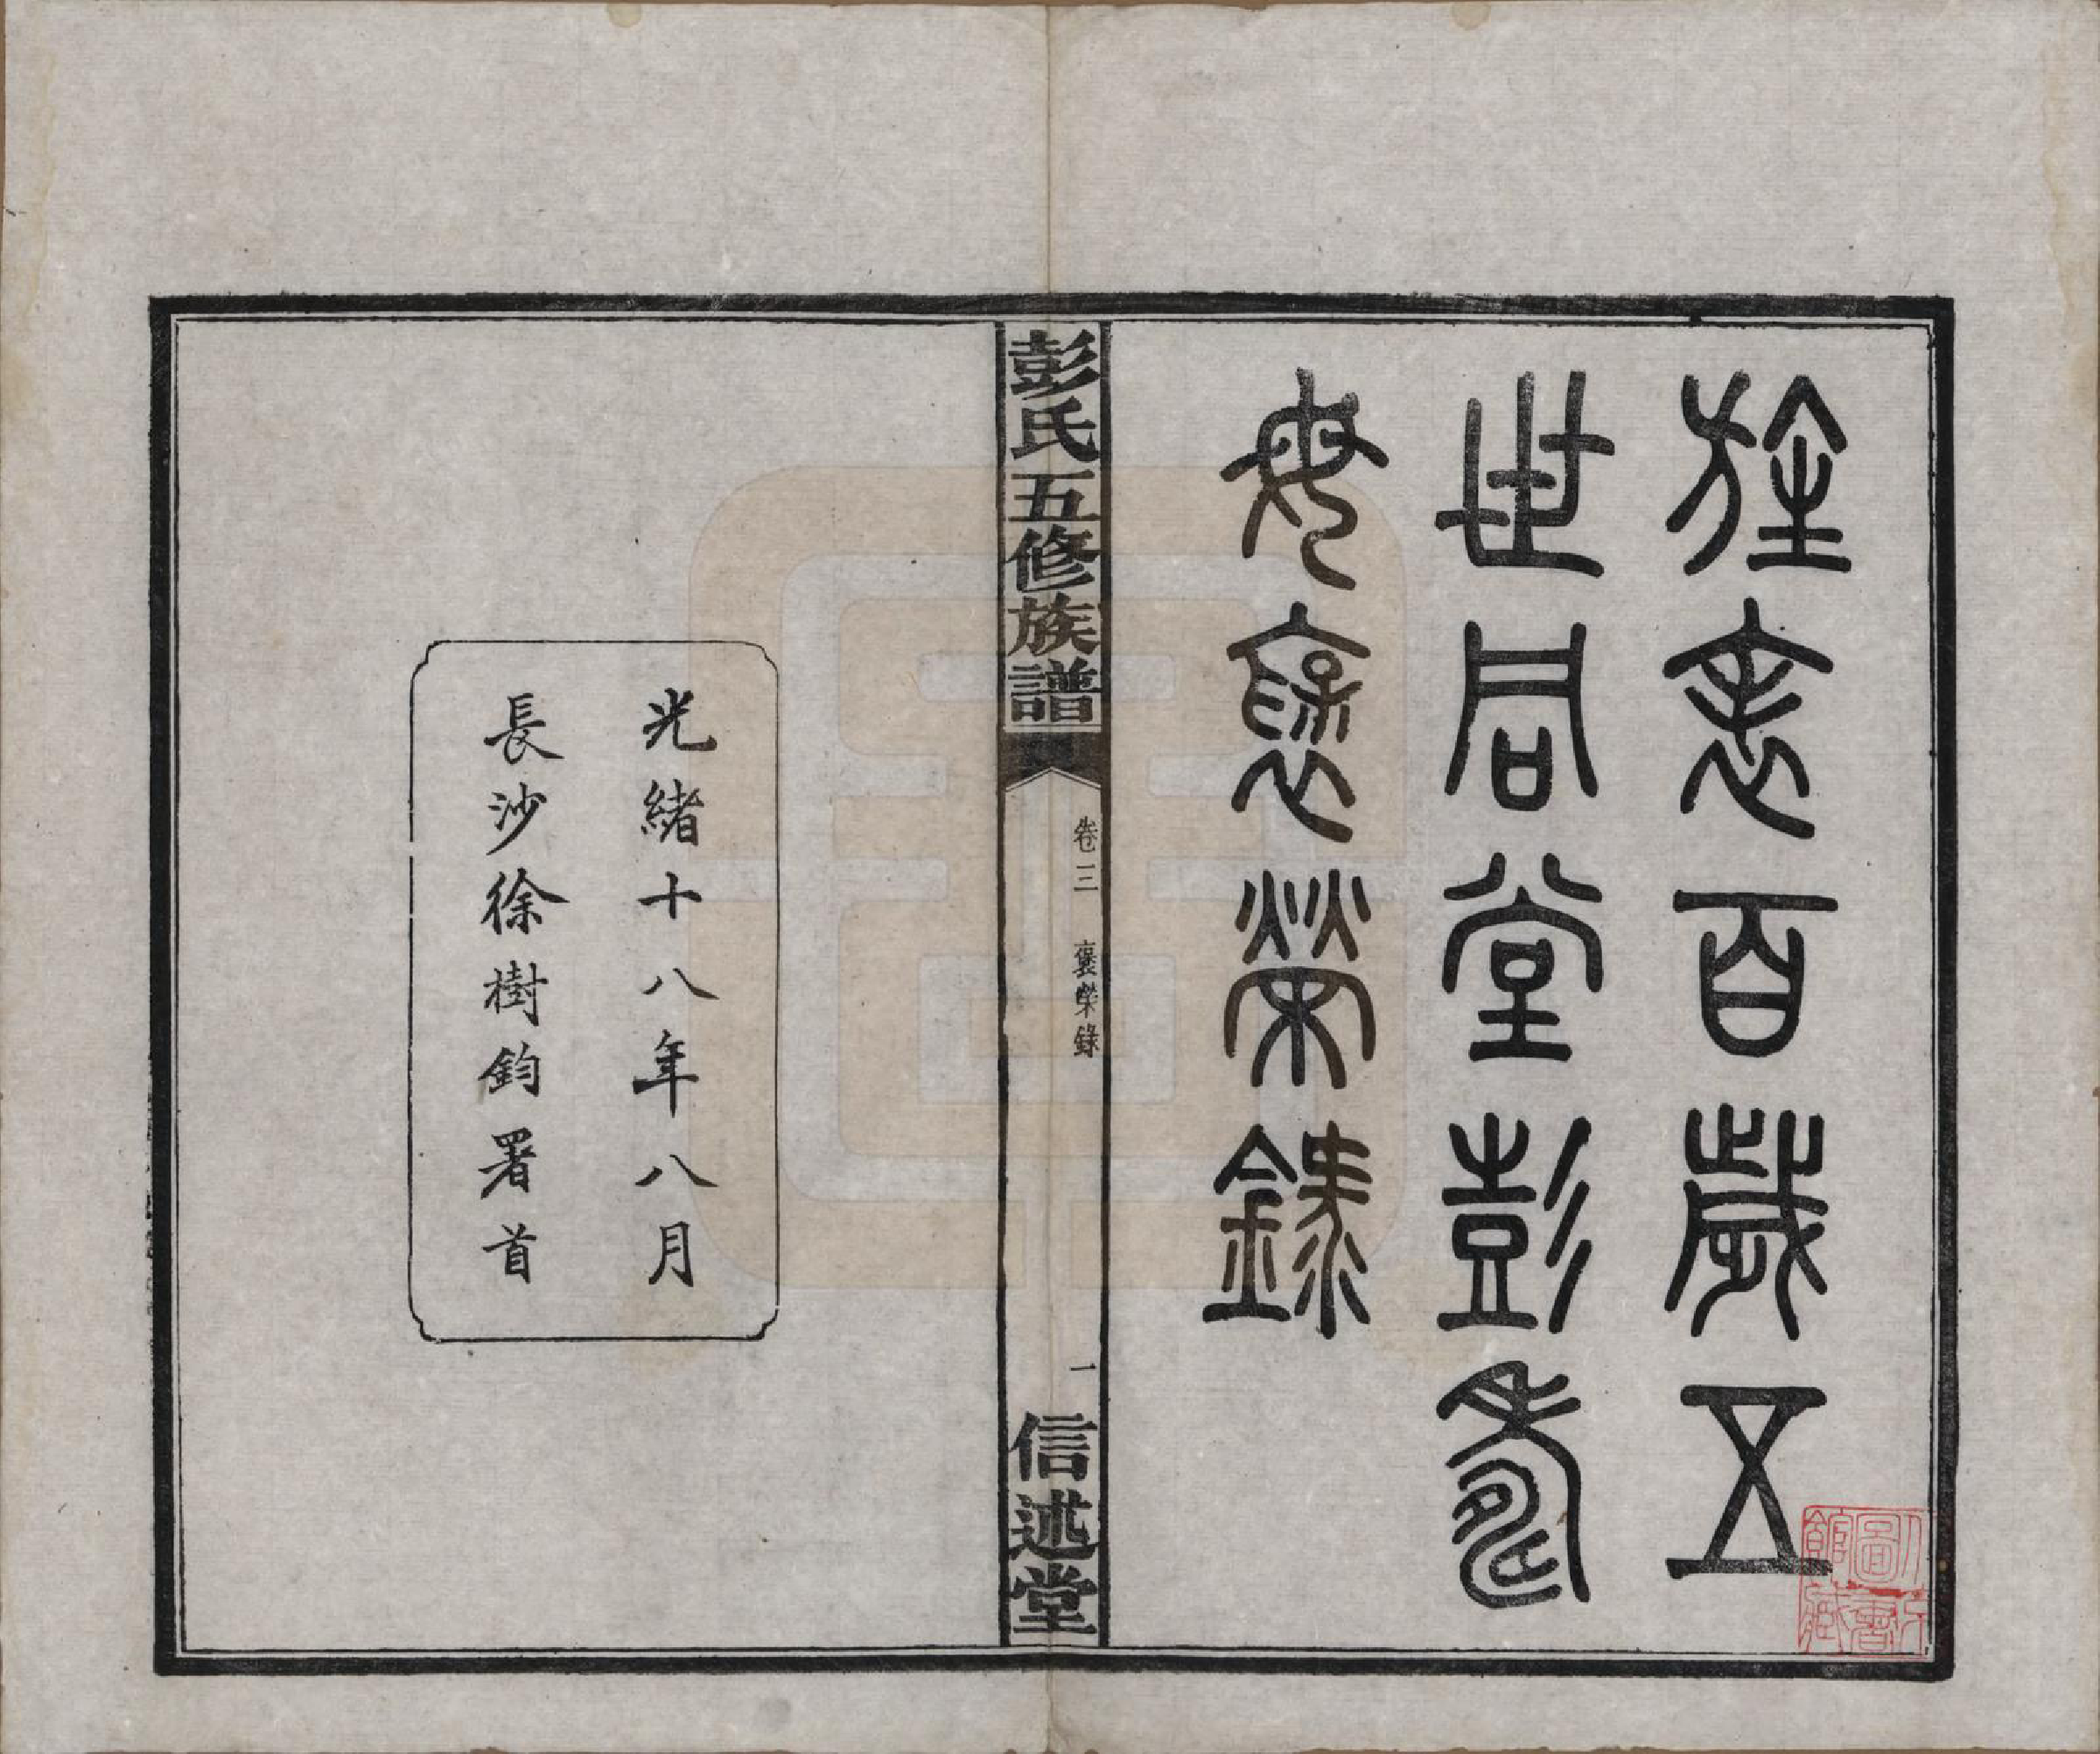 旌表百歲五
世同堂彭壽
母褒榮錄
彭氏五修族譜
卷三 褒榮錄
一
信述堂
光緒十八年八月
長沙徐樹鈞署首
圖書
館藏